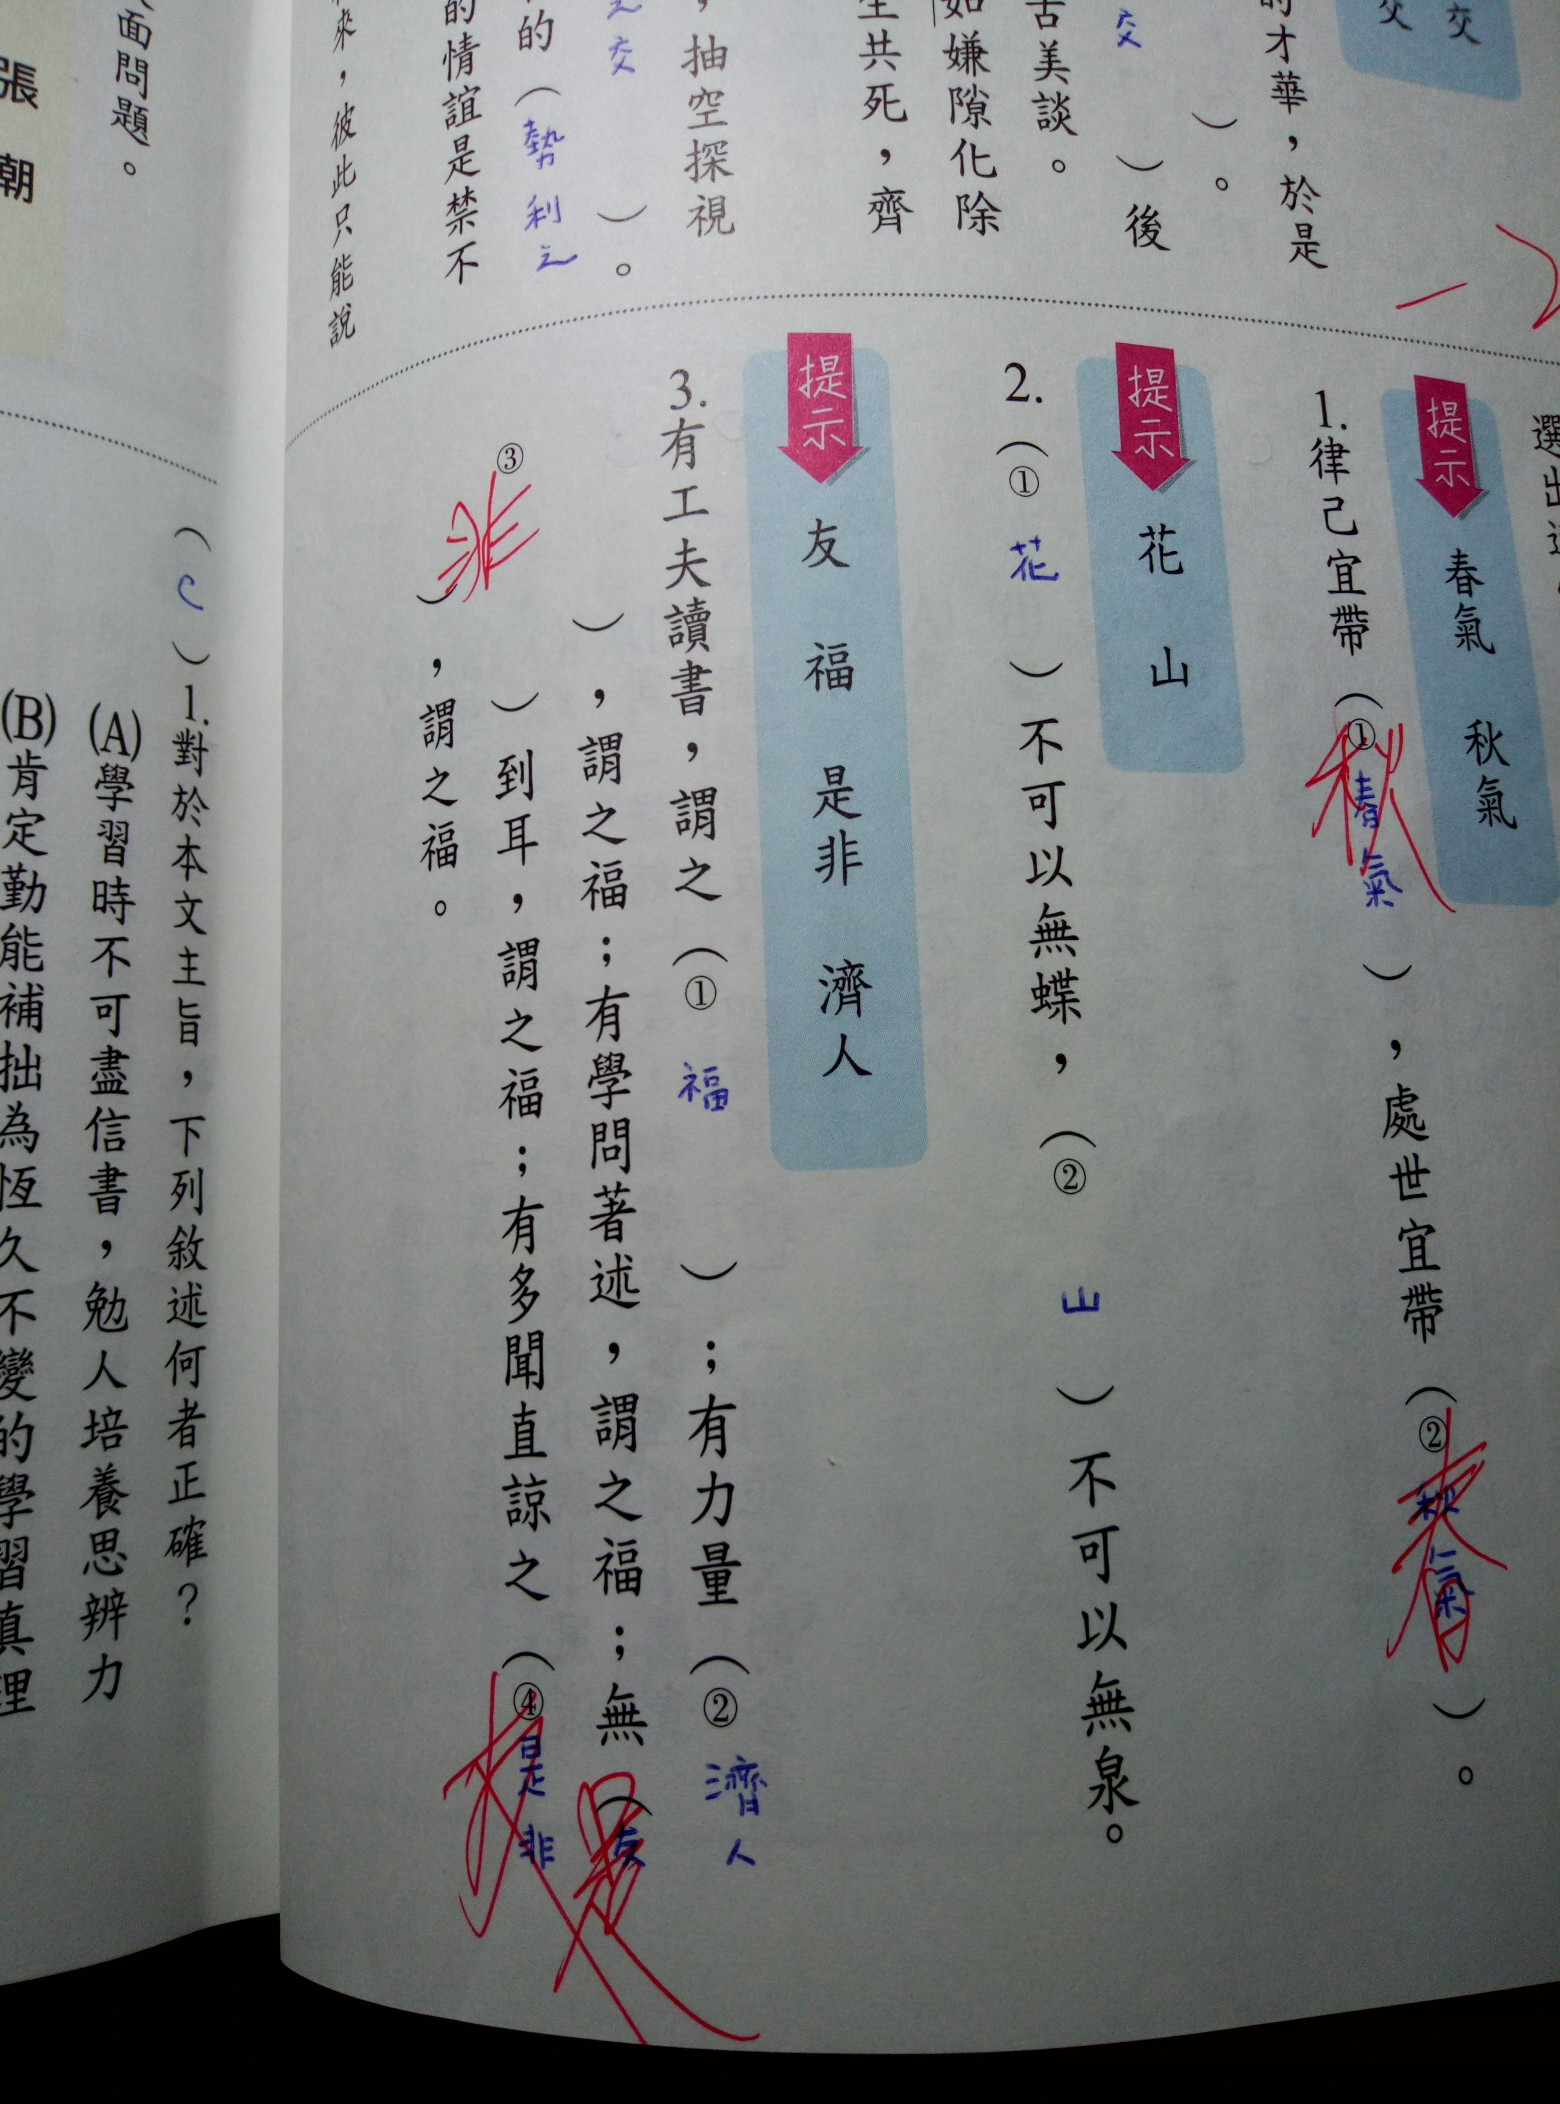 交
交
的才華，於是
）。
交
）後
古美談。
如嫌隙化除
生共死，齊
，抽空探視
之交
）。
的（勢利之
的情誼是禁不
來，彼此只能說
選出
提示
春氣 秋氣
1.律己宜帶（①春氣），處世宜帶（②秋氣）。
秋
春
提示
花 山
2.（①花）不可以無蝶，（②山）不可以無泉。
提示
友 福 是非 濟人
3.有工夫讀書，謂之（①福）；有力量（②濟人
），謂之福；有學問著述，謂之福；無（友
是
③
非
）到耳，謂之福；有多聞直諒之（④是非
友
），謂之福。
面問題。
張 潮
（C）1.對於本文主旨，下列敘述何者正確？
(A)學習時不可盡信書，勉人培養思辨力
(B)肯定勤能補拙為恆久不變的學習真理